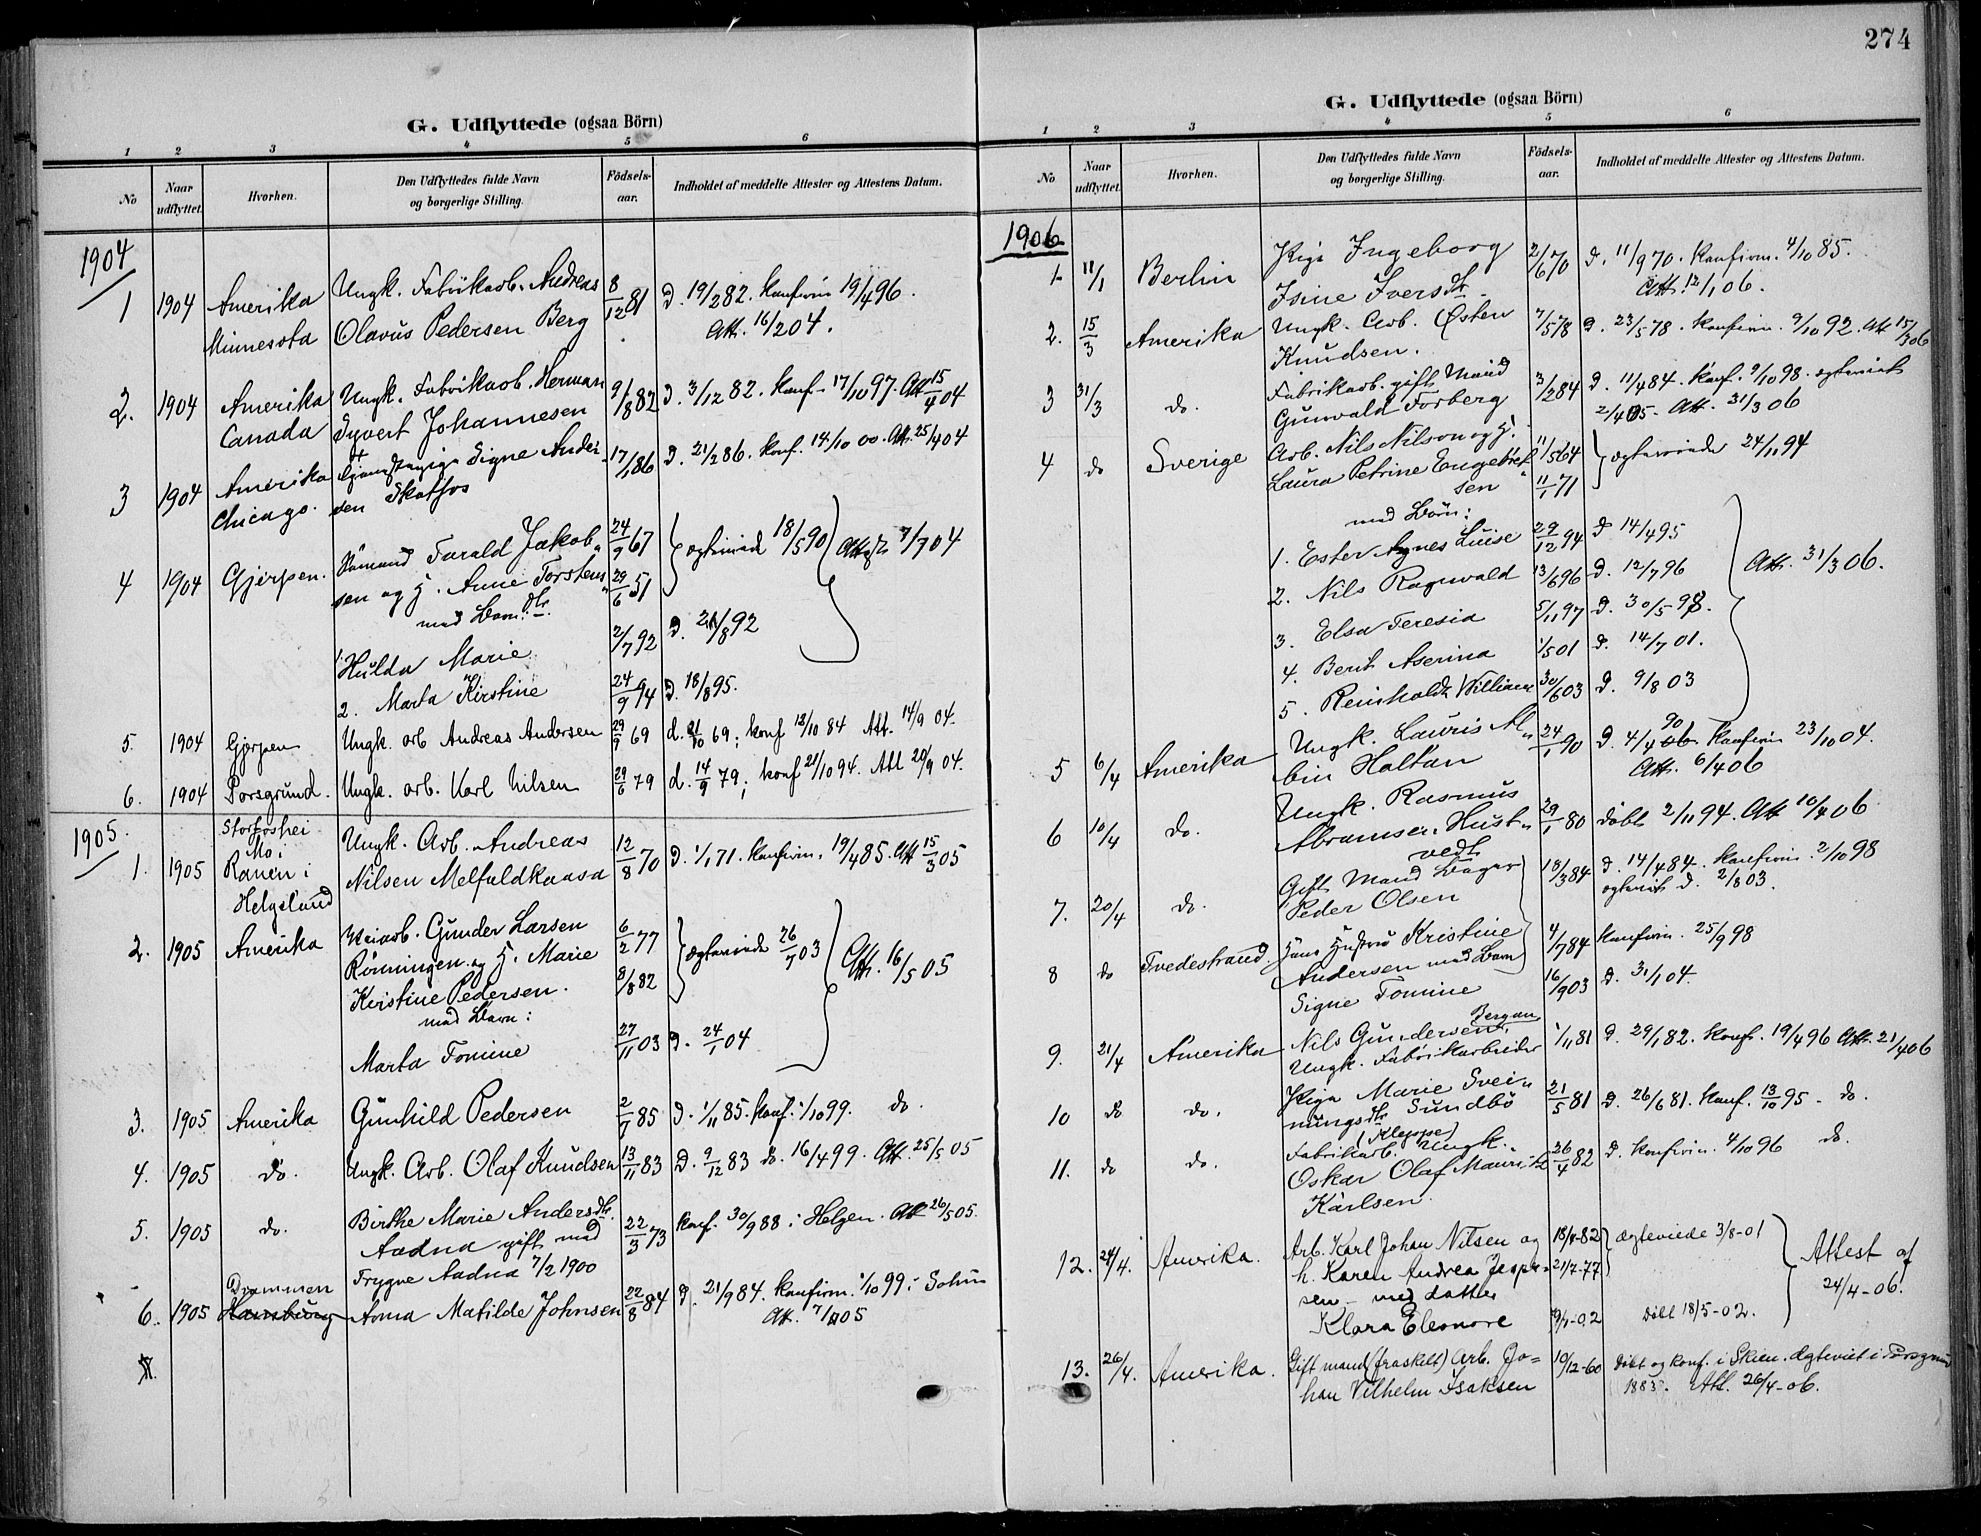 274
G. Udflyttede (ogsaa Börn)
1 2 3 4 5 6
No Naar udflyttet. Hvorhen. Den Udflyttedes fulde Navn og borgerlige Stilling. Födsels-aar. Indholdet af meddelte Attester og Attestens Datum.
1904
1 1904 Amerika Ungk. Fabrikarb. Andreas 8/12 81 D. 19/2 82. Konfirm 19/4 96.
Minnesota Olavus Pedersen Berg Att. 16/2 04.
2. 1904 Amerika Ungk. Fabrikarb. Herman 9/8 82 D. 3/12 82. Konf. 17/10 97. Att 15/4 04
Canada Syvert Johannesen
3 1904 Amerika Signe Ander- 17/1 86 D. 21/2 86. Konf. 14/10 00. Att. 25/4 04
Chicago. sen Skotfos
4 1904 Gjerpen. Sömand Tarald Jakob- 24/9 67 ægteviede 18/5 90 Att 7/7 04
sen og H. Anne Torstens- 29/6 51
med Barn: dtr.
1. Hulda Marie 2/7 92 D. 21/8 92
2. Marta Kirstine 24/9 94 D. 18/8 95.
5. 1904 Gjerpen Ungk. arb Andreas Andersen 29/9 69 d. 31/10 69; konf 12/10 84 Att. 14/9 04.
6. 1904 Porsgrund. Ungk. arb. Karl Nilsen 29/6 79 d. 14/9 79; konf 21/10 94. Att 20/9 04.
1905.
Storfoshei
Mo i
1. 1905 Ranen i Ungk. Arb. Andreas 12/8 70 D. 1/1 71. Konfirm. 19/4 85. Att 15/3 05
Helgeland Nilsen Melfaldkaasa
2. 1905 Amerika Veiarb. Gunder Larsen 6/2 77 ægteviede 26/7 03 Att. 16/5 05
Rönningen og H. Marie 8/8 82
Kristine Pedersen.
med Barn:
Marta Tomine 27/11 03 D. 24/1 04
3. 1905 Amerika Gunhild Pedersen 2/7 85 D. 1/11 85. Konf. 1/10 99. do.
4. 1905 do. Ungk. Arb. Olaf Knudsen 13/11 83 D. 9/12 83 do. 16/4 99. Att. 25/5 05
5. 1905 do. Birthe Marie Andersdtr. 22/3 73 Konf. 30/9 88 i Helgen. Att 26/5 05.
Aadna gift med
Trygve Aadna 7/2 1900
Drammen
6. 1905 Hamburg Anna Matilde Johnsen 22/8 84 D. 21/9 84. Konfirm. 1/10 99 i Solum
Att. 7/11 05
G. Udflyttede (ogsaa Börn)
1 2 3 4 5 6
No Naar udflyttet Hvorhen. Den Udflyttedes fulde Navn og borgerlige Stilling. Födsels-aar. Indholdet af meddelte Attester og Attestens Datum.
1906
1 11/1 Berlin Pige Ingeborg 2/6 70 D. 11/9 70. Konfirm. 4/10 85.
Isine Iversdtr. Att. 12/1 06.
2. 15/3 Amerika Ungk. Arb. Østen 7/5 78 D. 23/5 78. Konfirm. 9/10 92. Att 15/3 06
Knudsen.
3 31/3 do. Fabrikarb. gift Mand 3/2 84 D. 11/4 84. Konf. 9/10 98. ægteviet
Gunvald Forberg 2/4 05. Att. 31/3 06
4 do Sverige Arb. Nils Nilson og H. 11/5 64 ægteviede 24/11 94
Laura Petrine Engebret- 11/1 71
sen
med Börn:
1. Ester Agnes Luise 29/12 94 D 14/4 95
2. Nils Ragnvald 13/6 96 D. 12/7 96 Att. 31/3 06.
3. Elsa Teresia 5/11 97 D. 30/5 98.
4. Berit Aserina 1/5 01 D. 14/7 01.
5. Reinholdt William 30/6 03 D. 9/8 03
5 6/4 Amerika Ungk. Lauris Al- 24/1 90 D. 4/4 06 90 Konfirm 23/10 04.
bin Haltan Att. 6/4 06
6 10/4 do. Ungk. Rasmus 29/1 80 Döbt 2/11 94. Att 10/4 06
Abramsen Hust-
vedt
7. 20/4 do. Gift Mand Bager 18/3 84 D. 14/4 84. Konfirm. 2/10 98
Peder Olsen ægteviet d. 2/8 03.
8 do Tvedestrand. Hans Hustru Kristine 4/7 84 Konfirm. 25/9 98
Andersen med Barn
Signe Tomine 16/9 03 D. 31/1 04.
9. 21/4 Amerika Nils Gundersen Bergan 1/11 81 D. 29/1 82. Konf. 19/4 96 Att. 21/4 06
Ungk. Fabrikarbeider
10 do do. Pige Marie Svei- 21/5 81 D. 26/6 81. Konf. 13/10 95 - do.
nungsdtr. Sundbö
(Kleppe)
11. do do. Fabrikarb. Ungk. 26/4 82 D. Konfirm. 4/10 96 do.
Oskar Olaf Mauritz
Karlsen.
12. 24/4. Amerika. Arb. Karl Johan Nilsen og 18/4-82 ægteviede 3/8-01 Attest af
h. Karen Andrea Jesper- 21/7-77 24/4-06.
sen - med datter
Klara Eleonore Döbt 18/5-02.
13. 26/4. Amerika. Gift mand (fraskilt) Arb. Jo= 19/12-60 Döbt og konf. i Skien. Ægteviet i Porsgrund
han Vilhelm Isaksen 1883. Att. 26/4-06.